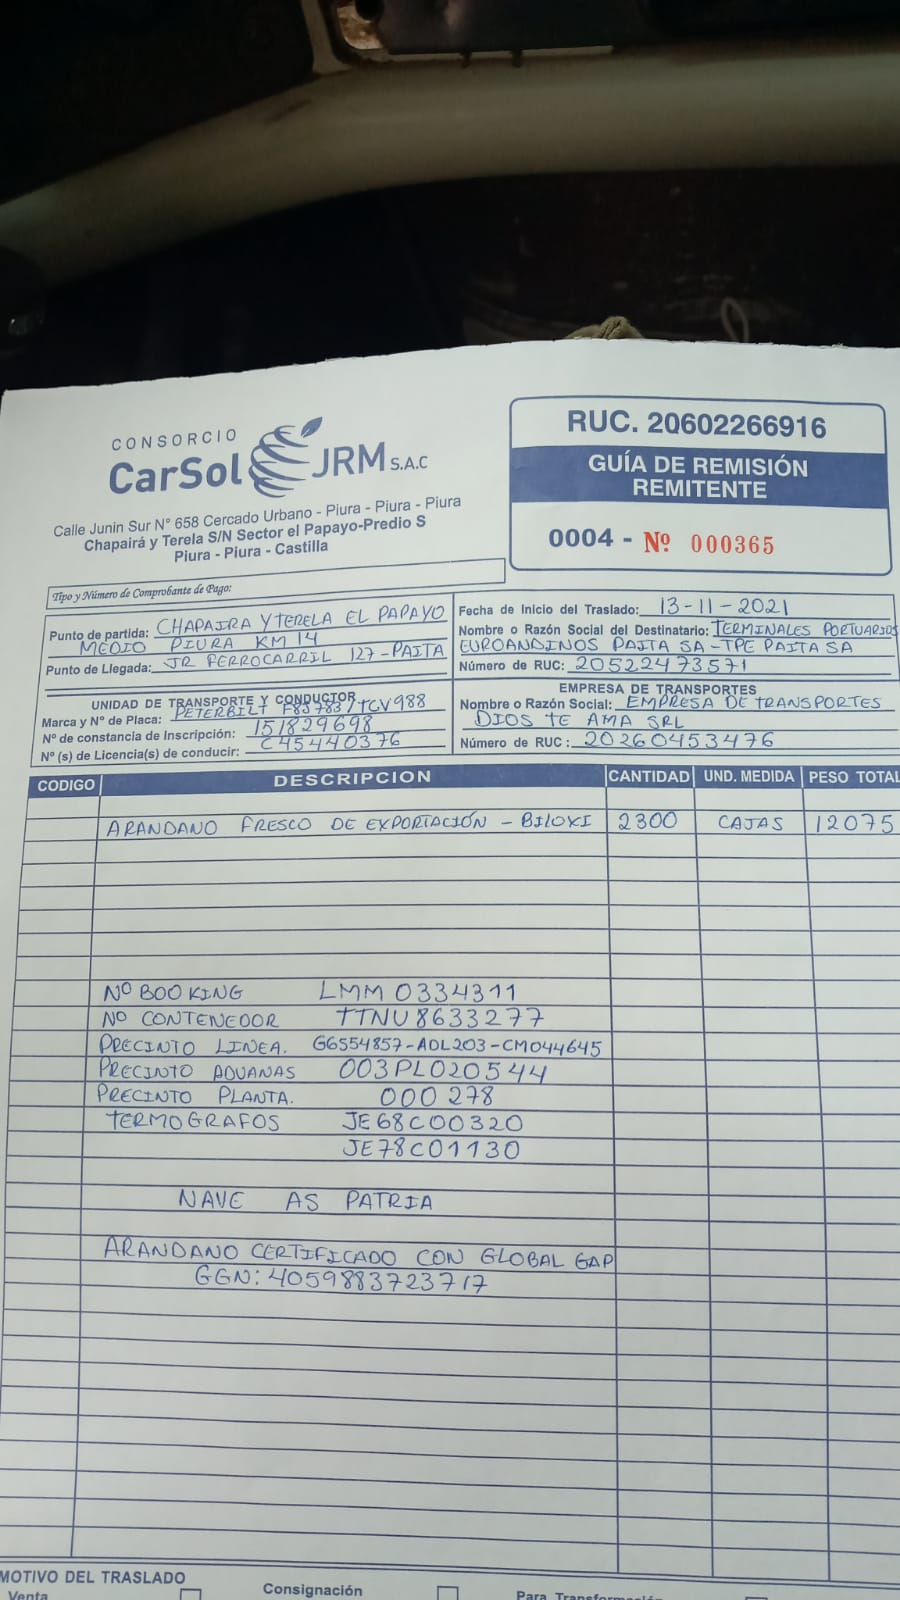 CONSORCIO
CarSol JRM S.A.C
Calle Junin Sur N° 658 Cercado Urbano - Piura - Piura - Piura
Chapairá y Terela S/N Sector el Papayo-Predio S
Piura - Piura - Castilla
RUC. 20602266916
GUÍA DE REMISIÓN
REMITENTE
0004 - Nº 000365
Tipo y Número de Comprobante de Pago:
Punto de partida: CHAPAIRA Y TERELA EL PAPAYO
MEDIO PIURA KM 14
Punto de Llegada: JR FERROCARRIL 127-PAITA
Fecha de Inicio del Traslado: 13-11-2021
Nombre o Razón Social del Destinatario: TERMINALES PORTUARIOS
EUROANDINOS PAITA SA-TPE PAITA SA
Número de RUC: 20522473571
UNIDAD DE TRANSPORTE Y CONDUCTOR
Marca y Nº de Placa: PETERBILT F8J783/TCV988
Nº de constancia de Inscripción: 151829698
Nº (s) de Licencia(s) de conducir: C45440376
EMPRESA DE TRANSPORTES
Nombre o Razón Social: EMPRESA DE TRANSPORTES
DIOS TE AMA SRL
Número de RUC: 20260453476
CODIGO DESCRIPCION CANTIDAD UND. MEDIDA PESO TOTAL
ARANDANO FRESCO DE EXPORTACIÓN - BILOXI 2300 CAJAS 12075
Nº BOOKING LMM0334311
NO CONTENEDOR TTNU8633277
PRECINTO LINEA. G6554857-ADL203-CM044645
PRECINTO ADUANAS 003PL020544
PRECINTO PLANTA. 000278
TERMOGRAFOS JE68C00320
JE78C01130
NAVE AS PATRIA
ARANDANO CERTIFICADO CON GLOBAL GAP
GGN: 4059883723717
MOTIVO DEL TRASLADO
Venta
Consignación
Para Transformación